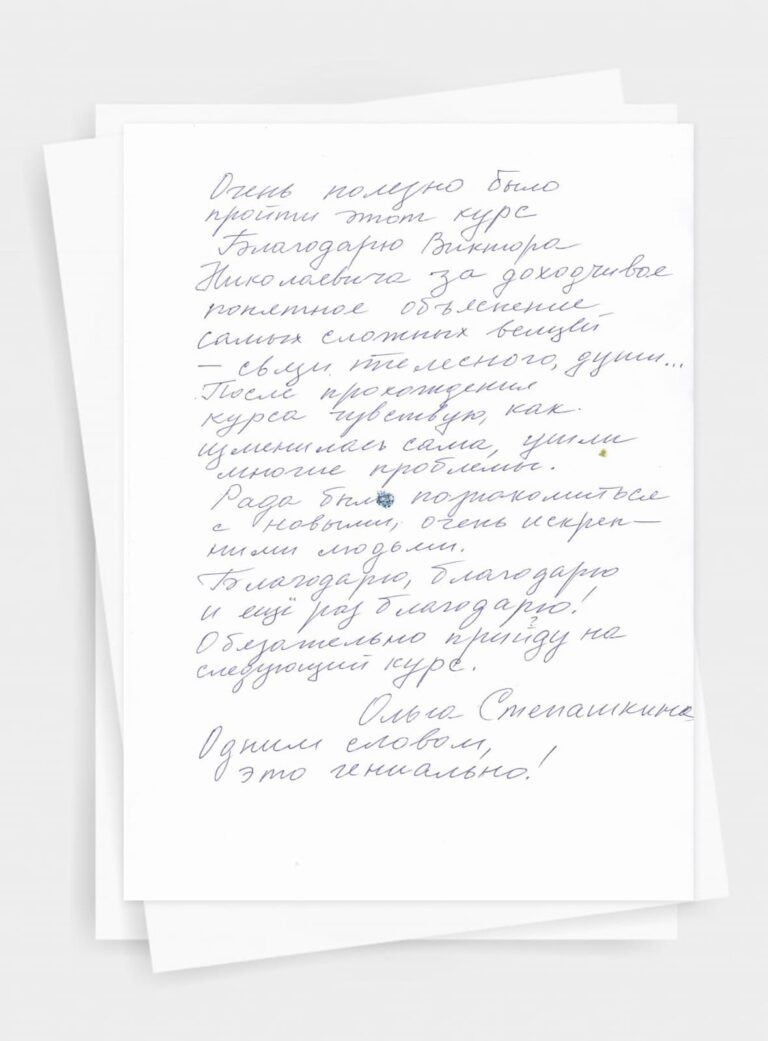 Очень полезно было
пройти этот курс
Благодарю Виктора
Николаевича за доходчивое
понятное объяснение
самых сложных вещей
— связи телесного, души...
После прохождения
курса чувствую, как
изменилась сама, ушли
многие проблемы.
Рада был познакомиться
с новыми, очень искрен—
ними людьми.
Благодарю, благодарю
и ещё раз благодарю!
Обязательно прийду на
следующий курс.
Ольга Степашкина
Одним словом,
это гениально!